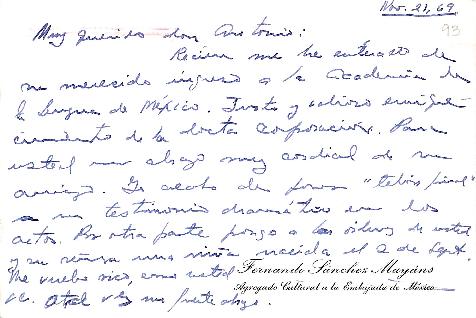 Nov. 21, 69.
93
Muy querido don Antonio:
Recién me he enterado de
su merecido ingreso a la Academia de
la Lengua de México. Justo y valioso enrique-
cimiento de la docta corporación. Para
usted un abrazo muy cordial de su
amigo. Yo acabo de poner "telón final"
a un testimonio dramático en dos
actos. Por otra parte pongo a las órdenes de usted
y su señora una niña nacida el 2 de Sept.
Me vuelvo rico, como usted
ve. Otra vez un fuerte abrazo.
Fernando Sánchez Mayáns
Agregado Cultural a la Embajada de México